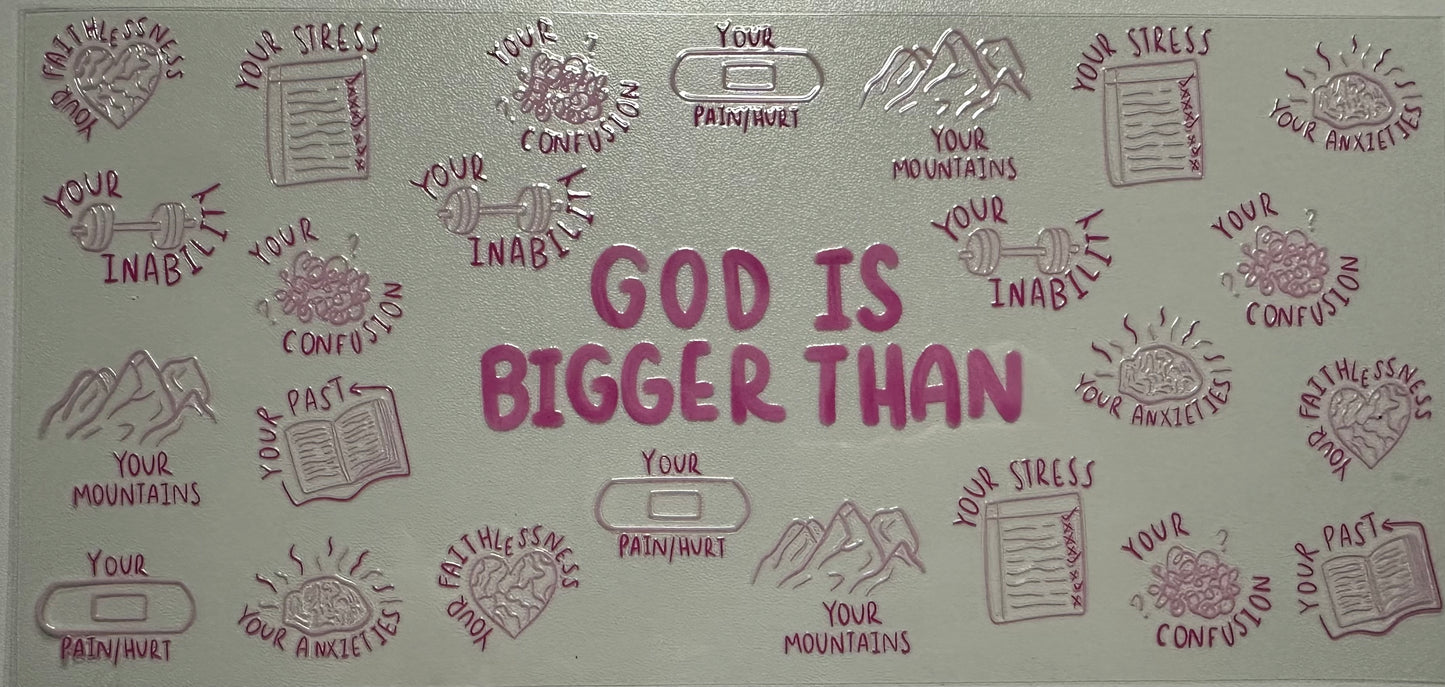 YOUR FAITHLESSNESS
YOUR STRESS
YOUR
CONFUSION
YOUR
PAIN/HURT
YOUR
MOUNTAINS
YOUR STRESS
YOUR ANXIETIES
YOUR
INABILITY
YOUR
INABILITY
YOUR
INABILITY
YOUR
CONFUSION
YOUR
CONFUSION
GOD IS
BIGGER THAN
YOUR ANXIETIES
YOUR
MOUNTAINS
YOUR PAST
YOUR FAITHLESSNESS
YOUR
PAIN/HURT
YOUR STRESS
YOUR
PAIN/HURT
YOUR ANXIETIES
YOUR FAITHLESSNESS
YOUR
MOUNTAINS
YOUR
CONFUSION
YOUR PAST